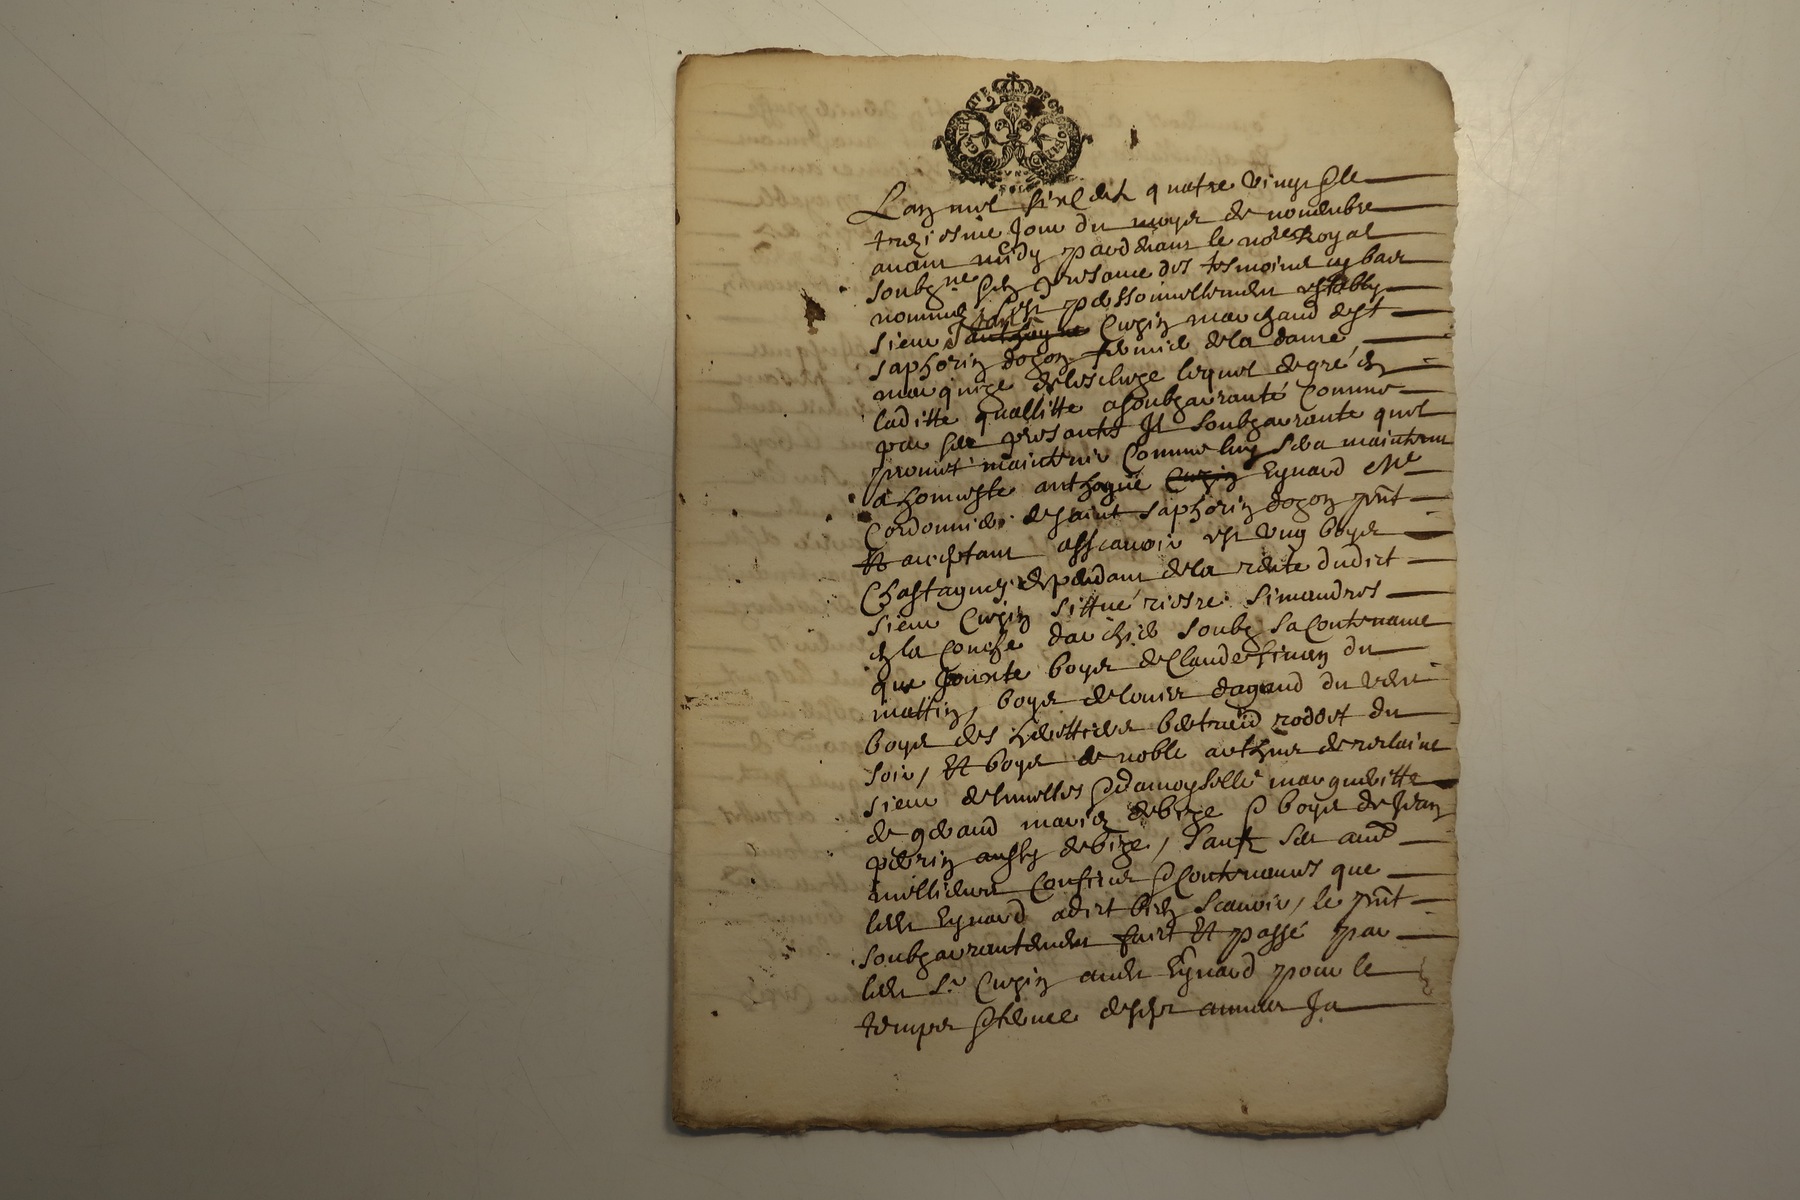 GENERALITE DE GRENOBLE
VN SOL
Lan mil six cent quatre vingt & le
treziesme jour du moys de novembre
avant midy pardevant le no.re Royal
soubz.ne & en presance des tesmoins cy bas
nommes sest personnellement estably
sieur Curzin marchand de st
saphorin dozon fermier de la dame
marquise de lescluze lequel de gré en
laditte quallitté a soubzarranté comme
par ses presantes Il soubzarrante quil
promet maintenir comme luy sera maintenu
à honneste anthoyne Curzin Eynard m.e
Cordonnier de saint saphorin dozon p.nt
Et acceptant assavoir est ung boys
Chastagnes dependant de la rente dudict
sieur Curzin sittué riesre simandres
en la soubz sa contenance
que jouxte boys de Claude du
mattin, boys de louis dagaud du vent
boys des herittiers bertrand roddet du
soir, Et boys de noble arthus de
sieur & damoyselle margueritte
de de bize & boys de Jean
perrin de bize, sauf ses au.tres
millieurs confins & contenances que
ledit Eynard a dict bien scavoir, le p.nt
soubzarrantement faict Et passé par
ledit S.r Curzin audit Eynard pour le
temps & terme de six années Ja